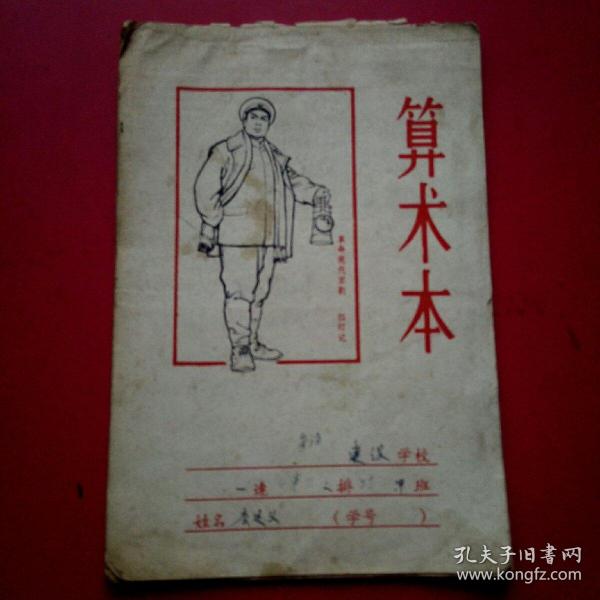 算术本
革命现代京剧 红灯记
学校
一连 排 班
姓名 （学号 ）
孔夫子旧书网
www.kongfz.com